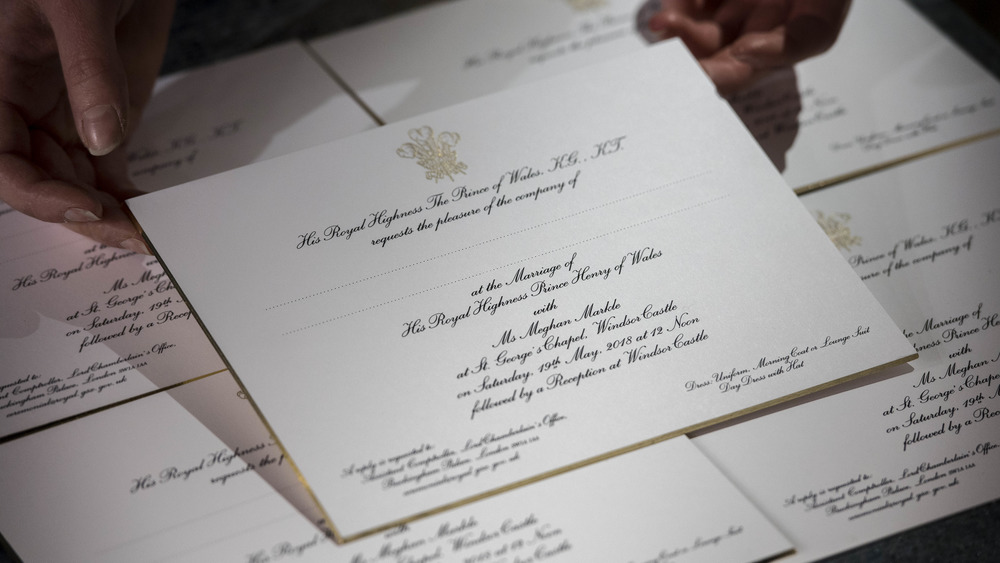 His Royal Highness The Prince of Wales, K.G., K.T.
requests the pleasure of the company of
at the Marriage of
His Royal Highness Prince Henry of Wales
with
Ms Meghan Markle
at St. George's Chapel, Windsor Castle
on Saturday, 19th May, 2018 at 12 Noon
followed by a Reception at Windsor Castle
Dress: Uniform, Morning Coat or Lounge Suit
Day Dress with Hat
A reply is requested to:
Assistant Comptroller, Lord Chamberlain's Office,
Buckingham Palace, London SW1A 1AA
Wales, K.G., K.T.
company of
His Royal Highness
at the
His Royal High
Ms Meg
at St. George's Ch
on Saturday, 19th
followed by a Recep
Lord Chamberlain's Office,
Buckingham Palace, London SW1A 1AA
His Royal Highness
requests the p
His Royal
with
Ms Meghan Markle
Chapel, Windsor Castle
2018 at 12 Noon
or Lounge Suit
Prince of Wales, K.G., K.T.
sure of the company of
the Marriage of
ness Prince Hen
with
Ms Meghan M
at St. George's Chape
on Saturday, 19th M
followed by a Rec
A reply is requested to:
Assistant Comptroller, Lord Chamberlain's Office,
Buckingham Palace, London SW1A 1AA